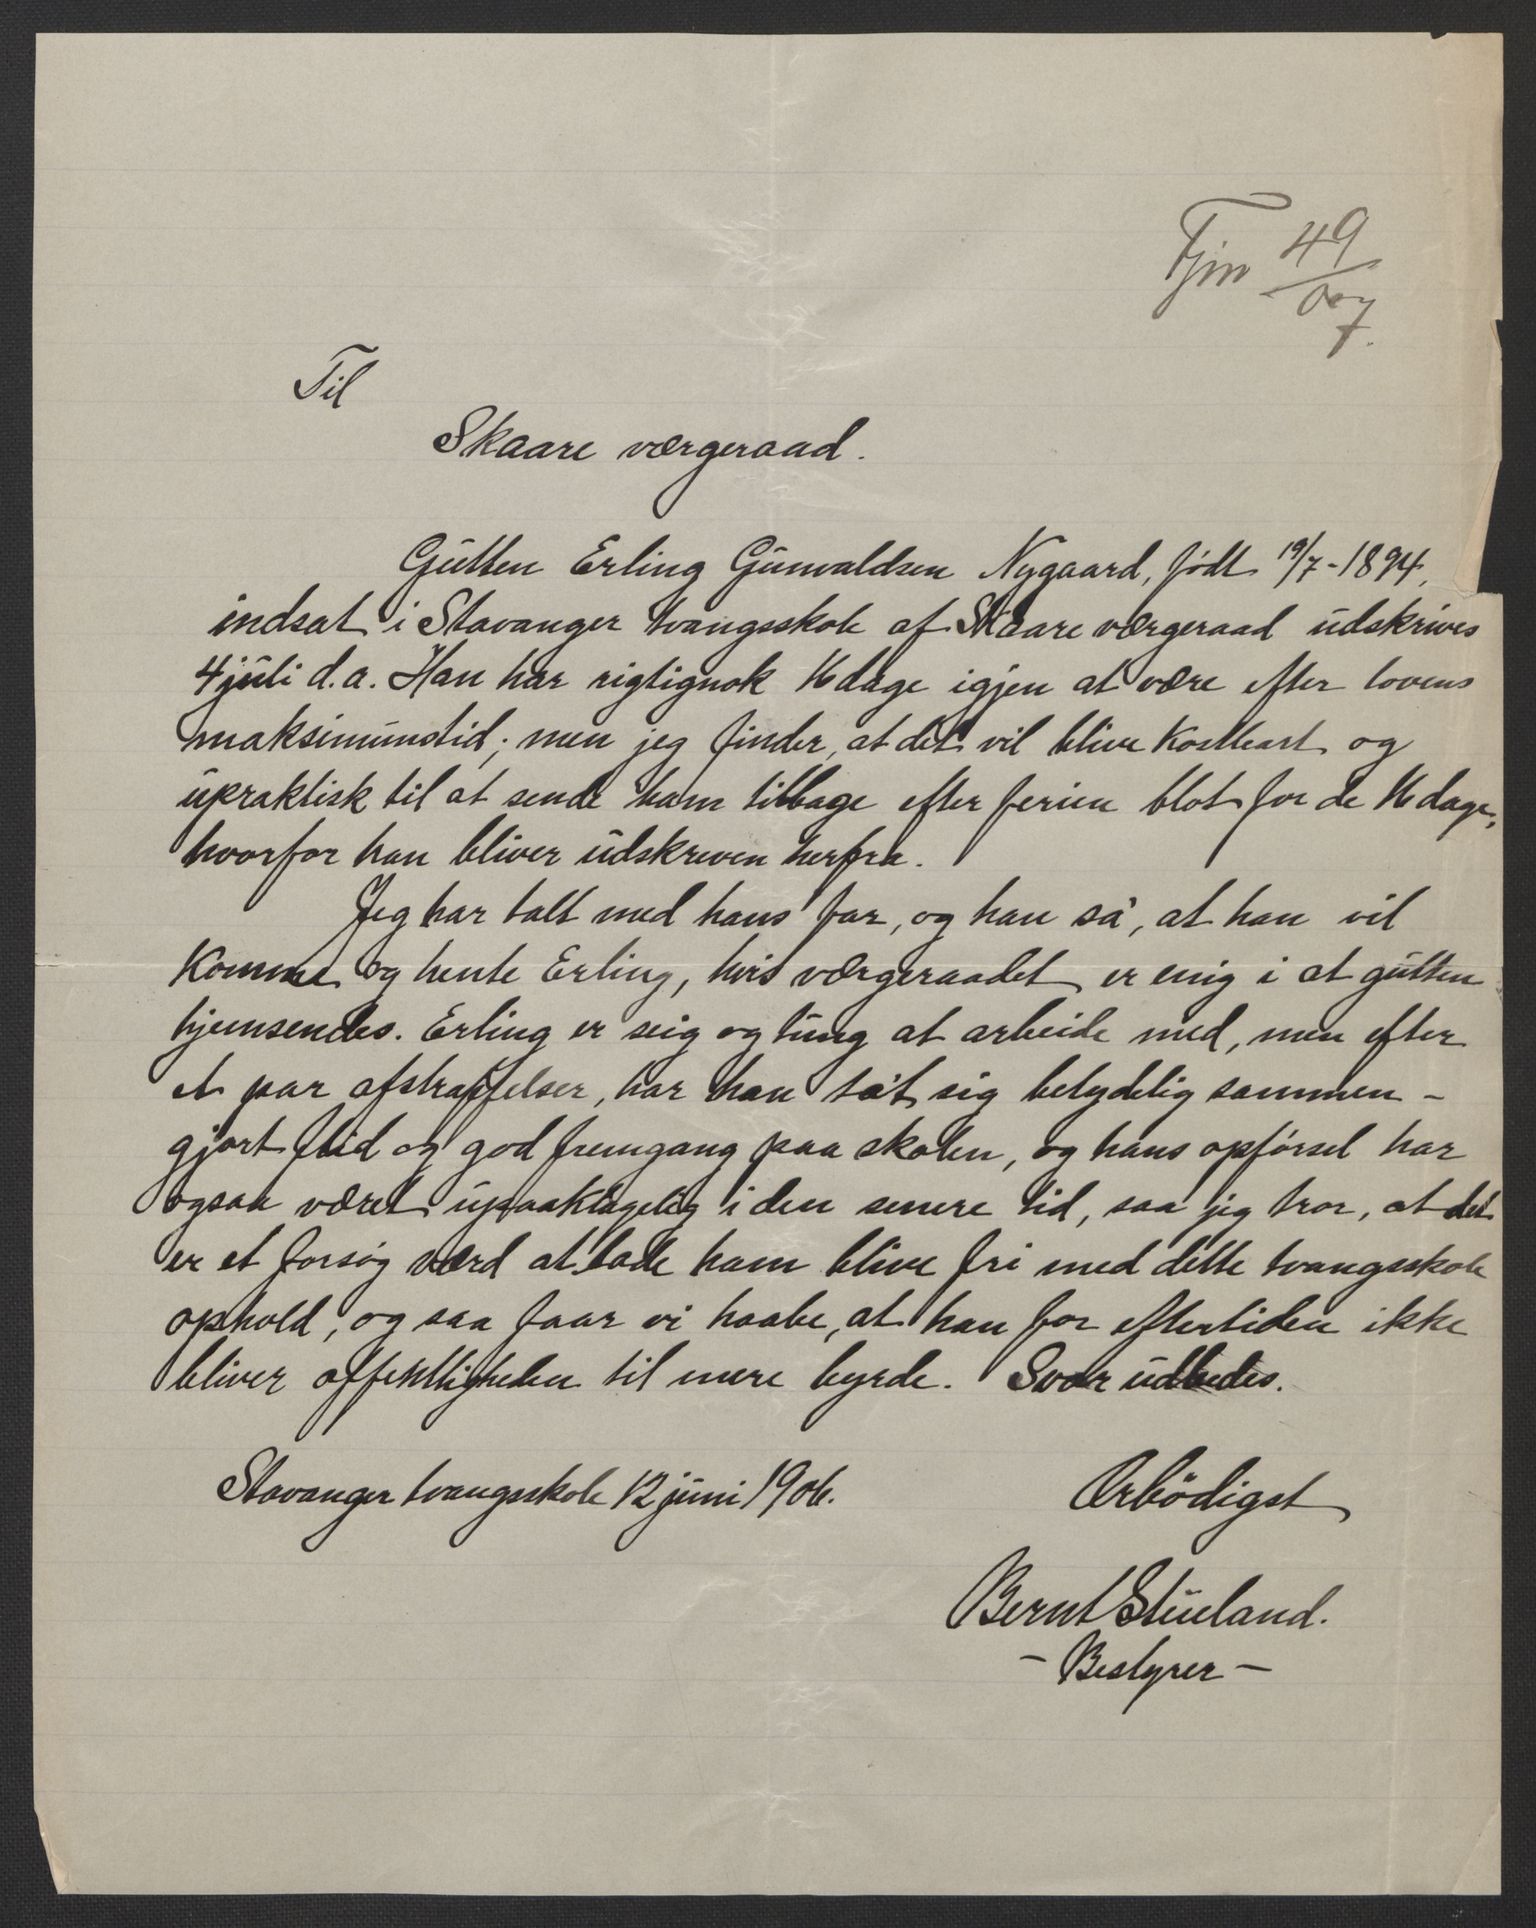 Fjm 49/007.
Til
Skaare værgeraad.
Gutten Erling Gunvaldsen Nygaard, født 19/7-1894,
indsat i Stavanger tvangsskole af Skaare værgeraad udskrives
4 juli d.a. Han har rigtignok 16 dage igjen at være efter lovens
maksimumstid; men jeg finder, at det vil blive kostbart og
upraktisk til at sende ham tilbage efter ferien blot for de 16 dage,
hvorfor han bliver udskreven herfra.
Jeg har talt med hans far, og han sa, at han vil
komme og hente Erling, hvis værgeraadet er enig i at gutten
hjemsendes. Erling er seig og tung at arbeide med, men efter
et par afstraffelser, har han tat sig betydelig sammen -
gjort flid og god fremgang paa skolen, og hans opførsel har
ogsaa været upaaklagelig i den senere tid, saa jeg tror, at det
er et forsøg værd at lade ham blive fri med dette tvangsskole
ophold, og saa faar vi haabe, at han for eftertiden ikke
bliver offentligheden til mere byrde. Svar udbedes.
Stavanger tvangsskole 12 juni 1906.
Ærbödigst
Bernt Stueland.
- Bestyrer -